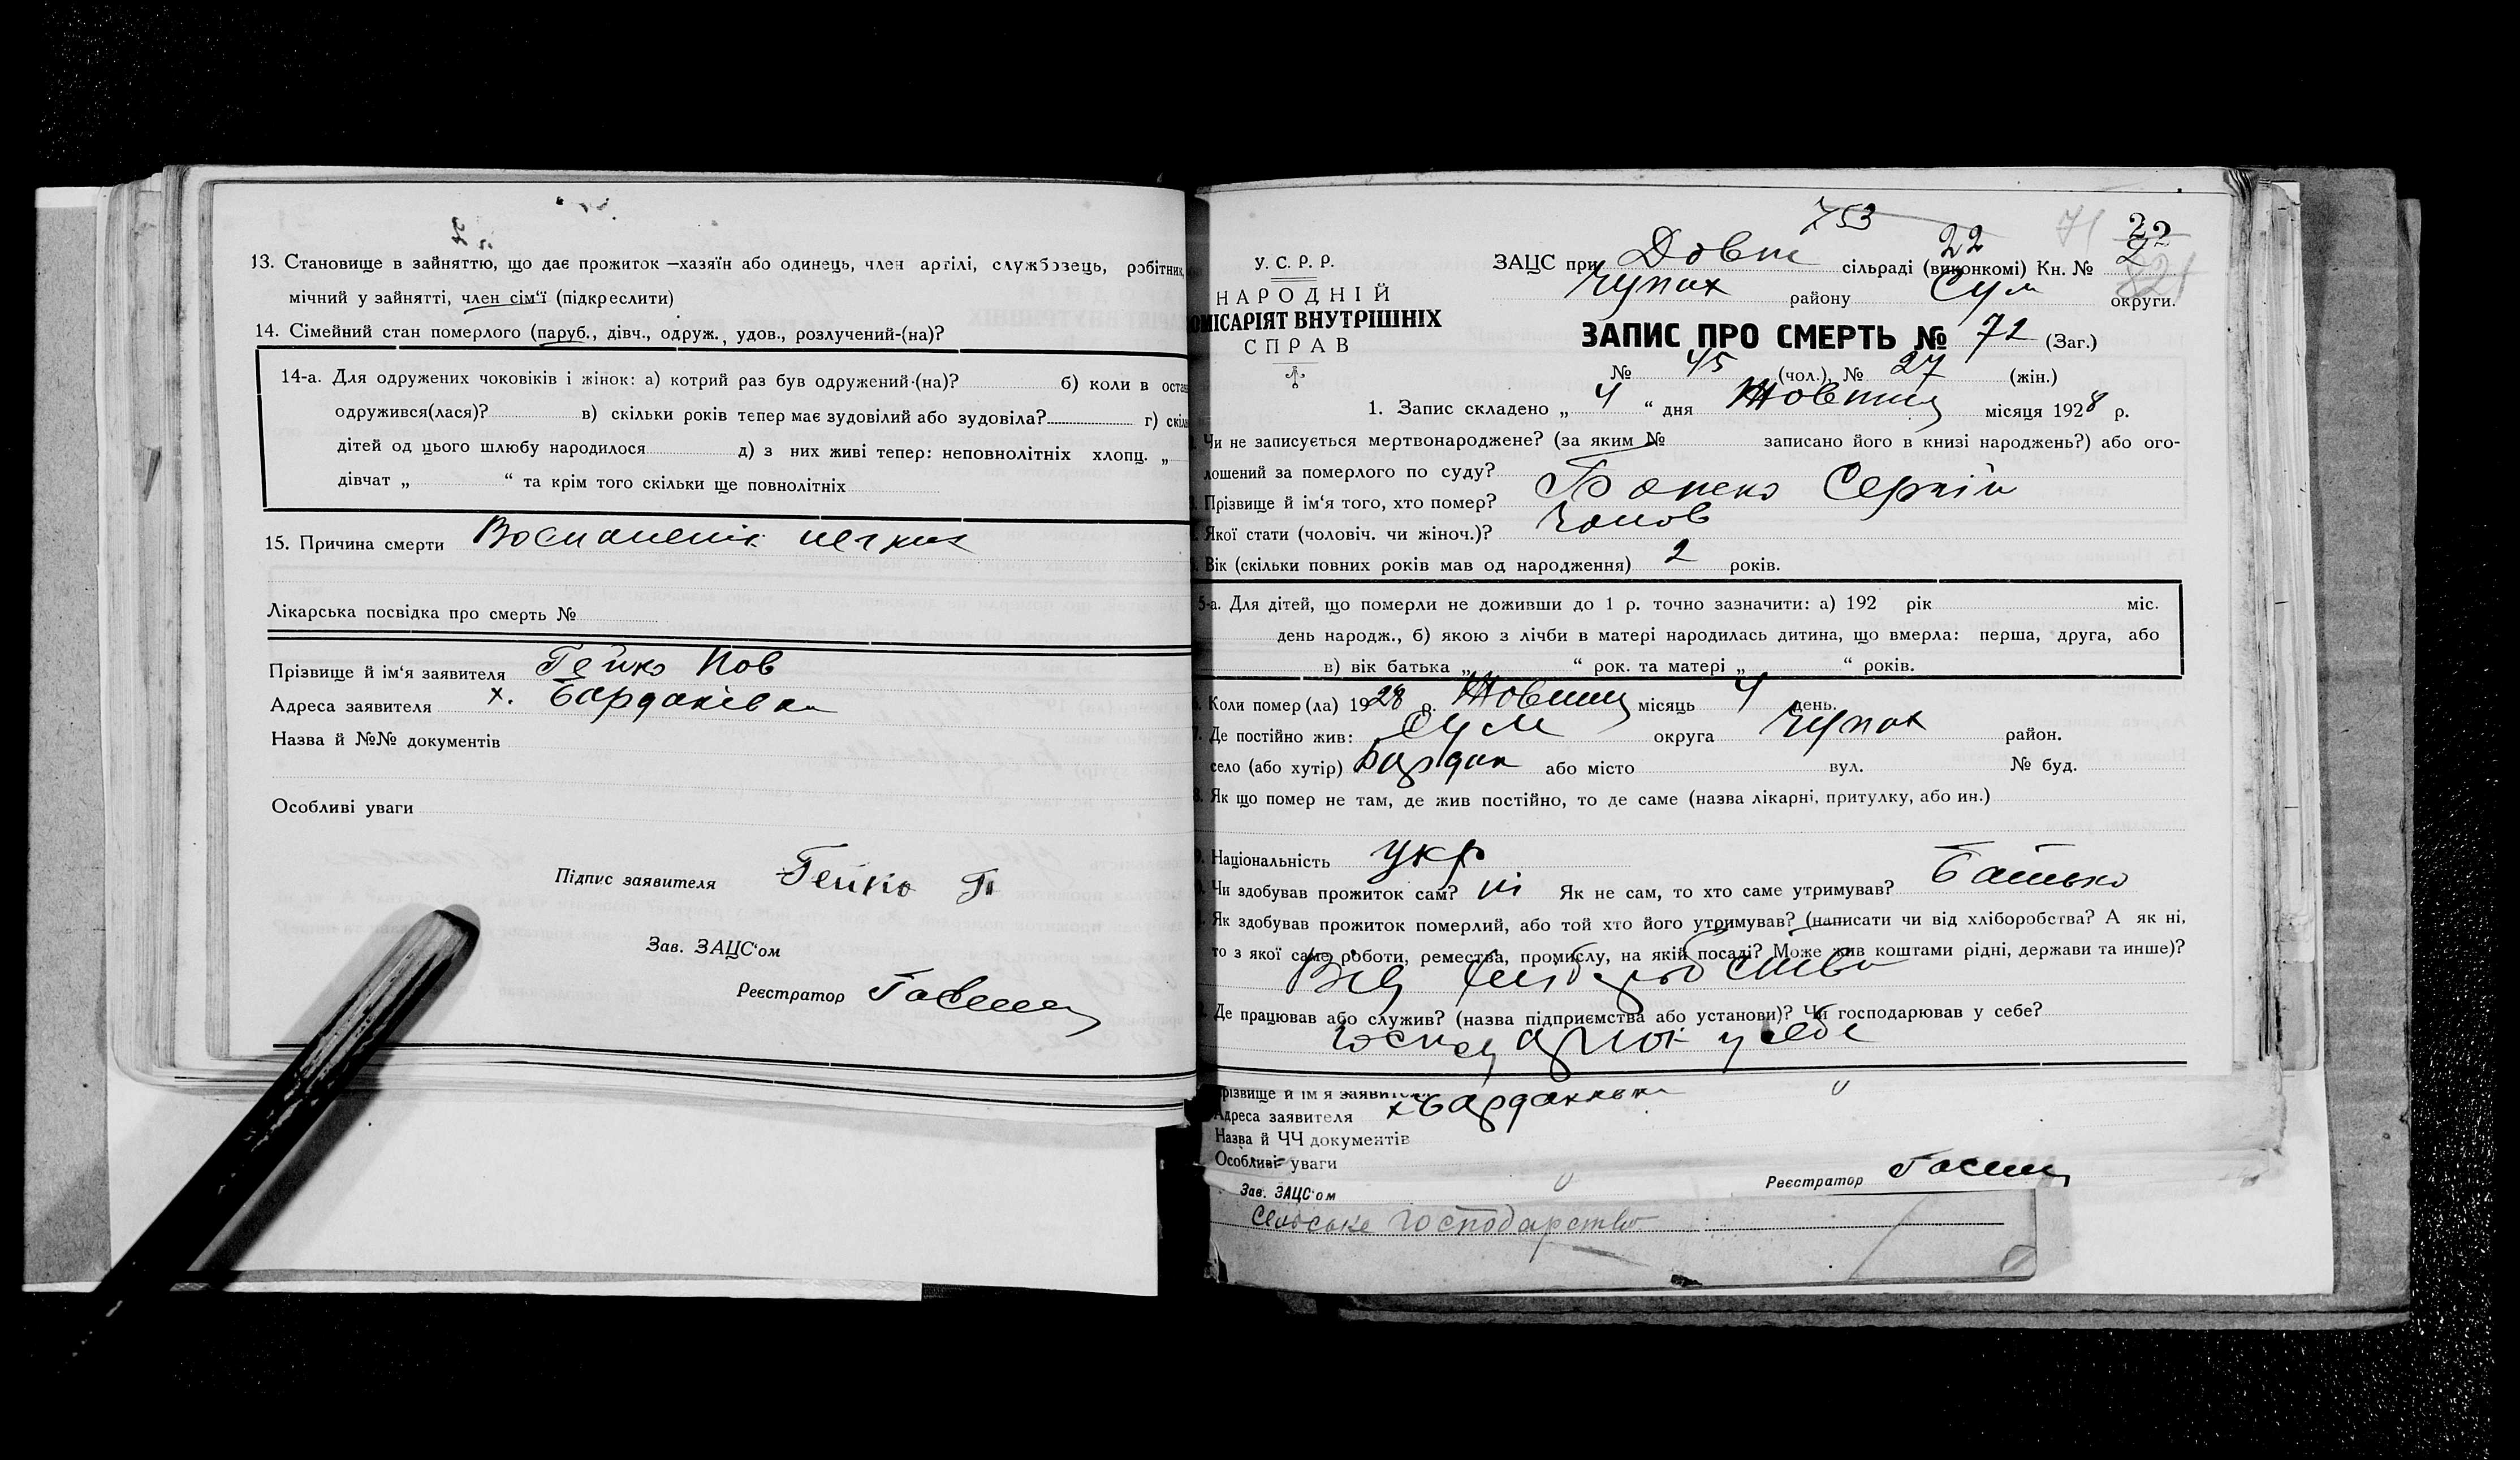 13. Становище в зайняттю, що дає прожиток —хазяїн або одинець, член артілі, службовець, робітник,
мічний у зайнятті, член сім‘ї (підкреслити)
14. Сімейний стан померлого (паруб., дівч., одруж., удов., розлучений-(на)?
14-а. Для одружених чоковіків і жінок: а) котрий раз був одружений-(на)? б) коли в оста
одружився(лася)? в) скільки років тепер має зудовілий або зудовіла? г) скіл
дітей од цього шлюбу народилося д) з них живі тепер: неповнолітніх хлопц. „
дівчат „ “ та крім того скільки ще повнолітніх
15. Причина смерти
Лікарська посвідка про смерть №
Прізвище й ім‘я заявителя Гейко Пав
Адреса заявителя х. Бардаківка
Назва й №№ документів
Особливі уваги
Підпис заявителя Гейко П
Зав. ЗАЦС‘ом
Реєстратор
753
71 22
22 2
221
У. С. Р. Р.
НАРОДНІЙ
ОМІСАРІЯТ ВНУТРІШНІХ
СПРАВ
ЗАЦС при Довж сільраді (виконкомі) Кн. №
Чупах району Сум округи.
ЗАПИС ПРО СМЕРТЬ № 72 (Заг.)
№ 45 (чол.), № 27 (жін.)
1. Запис складено „ 4 “ дня Жовтня місяця 1928 р.
Чи не записується мертвонароджене? (за яким № записано його в книзі народжень?) або ого-
лошений за померлого по суду?
Прізвище й ім‘я того, хто помер? Сергій
Якої стати (чоловіч. чи жіноч.)? Чолов
Вік (скільки повних років мав од народження) 2 років.
5-а. Для дітей, що померли не доживши до 1 р. точно зазначити: а) 192 рік міс.
день народж., б) якою з лічби в матері народилась дитина, що вмерла: перша, друга, або
в) вік батька „ “ рок. та матері „ “ років.
Коли помер (ла) 1928 р. Жовтня місяць 4 день.
Де постійно жив: Сум округа Чупах район.
село (або хутір) Бардак або місто вул. № буд.
8. Як що помер не там, де жив постійно, то де саме (назва лікарні, притулку, або ин.)
Національність укр
Чи здобував прожиток сам? ні Як не сам, то хто саме утримував? Батько
Як здобував прожиток померлий, або той хто його утримував? (написати чи від хліборобства? А як ні,
то з якої саме роботи, ремества, промислу, на якій посаді? Може жив коштами рідні, держави та инше)?
Від хліборобства
Де працював або служив? (назва підприємства або установи)? Чи господарював у себе?
у себе
Прізвище й ім я заявителя
Адреса заявителя х Бардаківка
Назва й ЧЧ документів
Особливі уваги
Зав. ЗАЦС‘ом
Реєстратор
сельське господарство